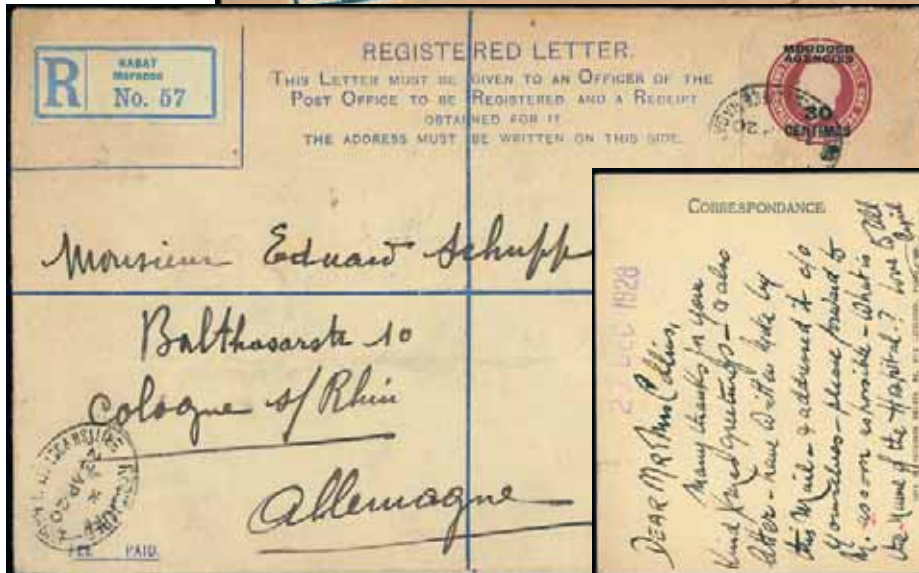 R
RABAT
Morocco
No. 57
REGISTERED LETTER.
THIS LETTER MUST BE GIVEN TO AN OFFICER OF THE
POST OFFICE TO BE REGISTERED AND A RECEIPT
OBTAINED FOR IT
THE ADDRESS MUST BE WRITTEN ON THIS SIDE.
MOROCCO
AGENCIES
30
CENTIMES
Monsieur Eduard Schupp
Balthasarstr 10
Cologne s/Rhin
Allemagne
23 AP 20
FEE PAID.
CORRESPONDANCE
DEC 1928
DEAR Mr & Mrs Collins,
Many thanks for your
kind Xmas greetings - also
letter - have written Leda by
this Mail - & addressed it c/o
of yourselves - please forward to
M. as soon as possible - What is
the name of the Hospital? Love to all